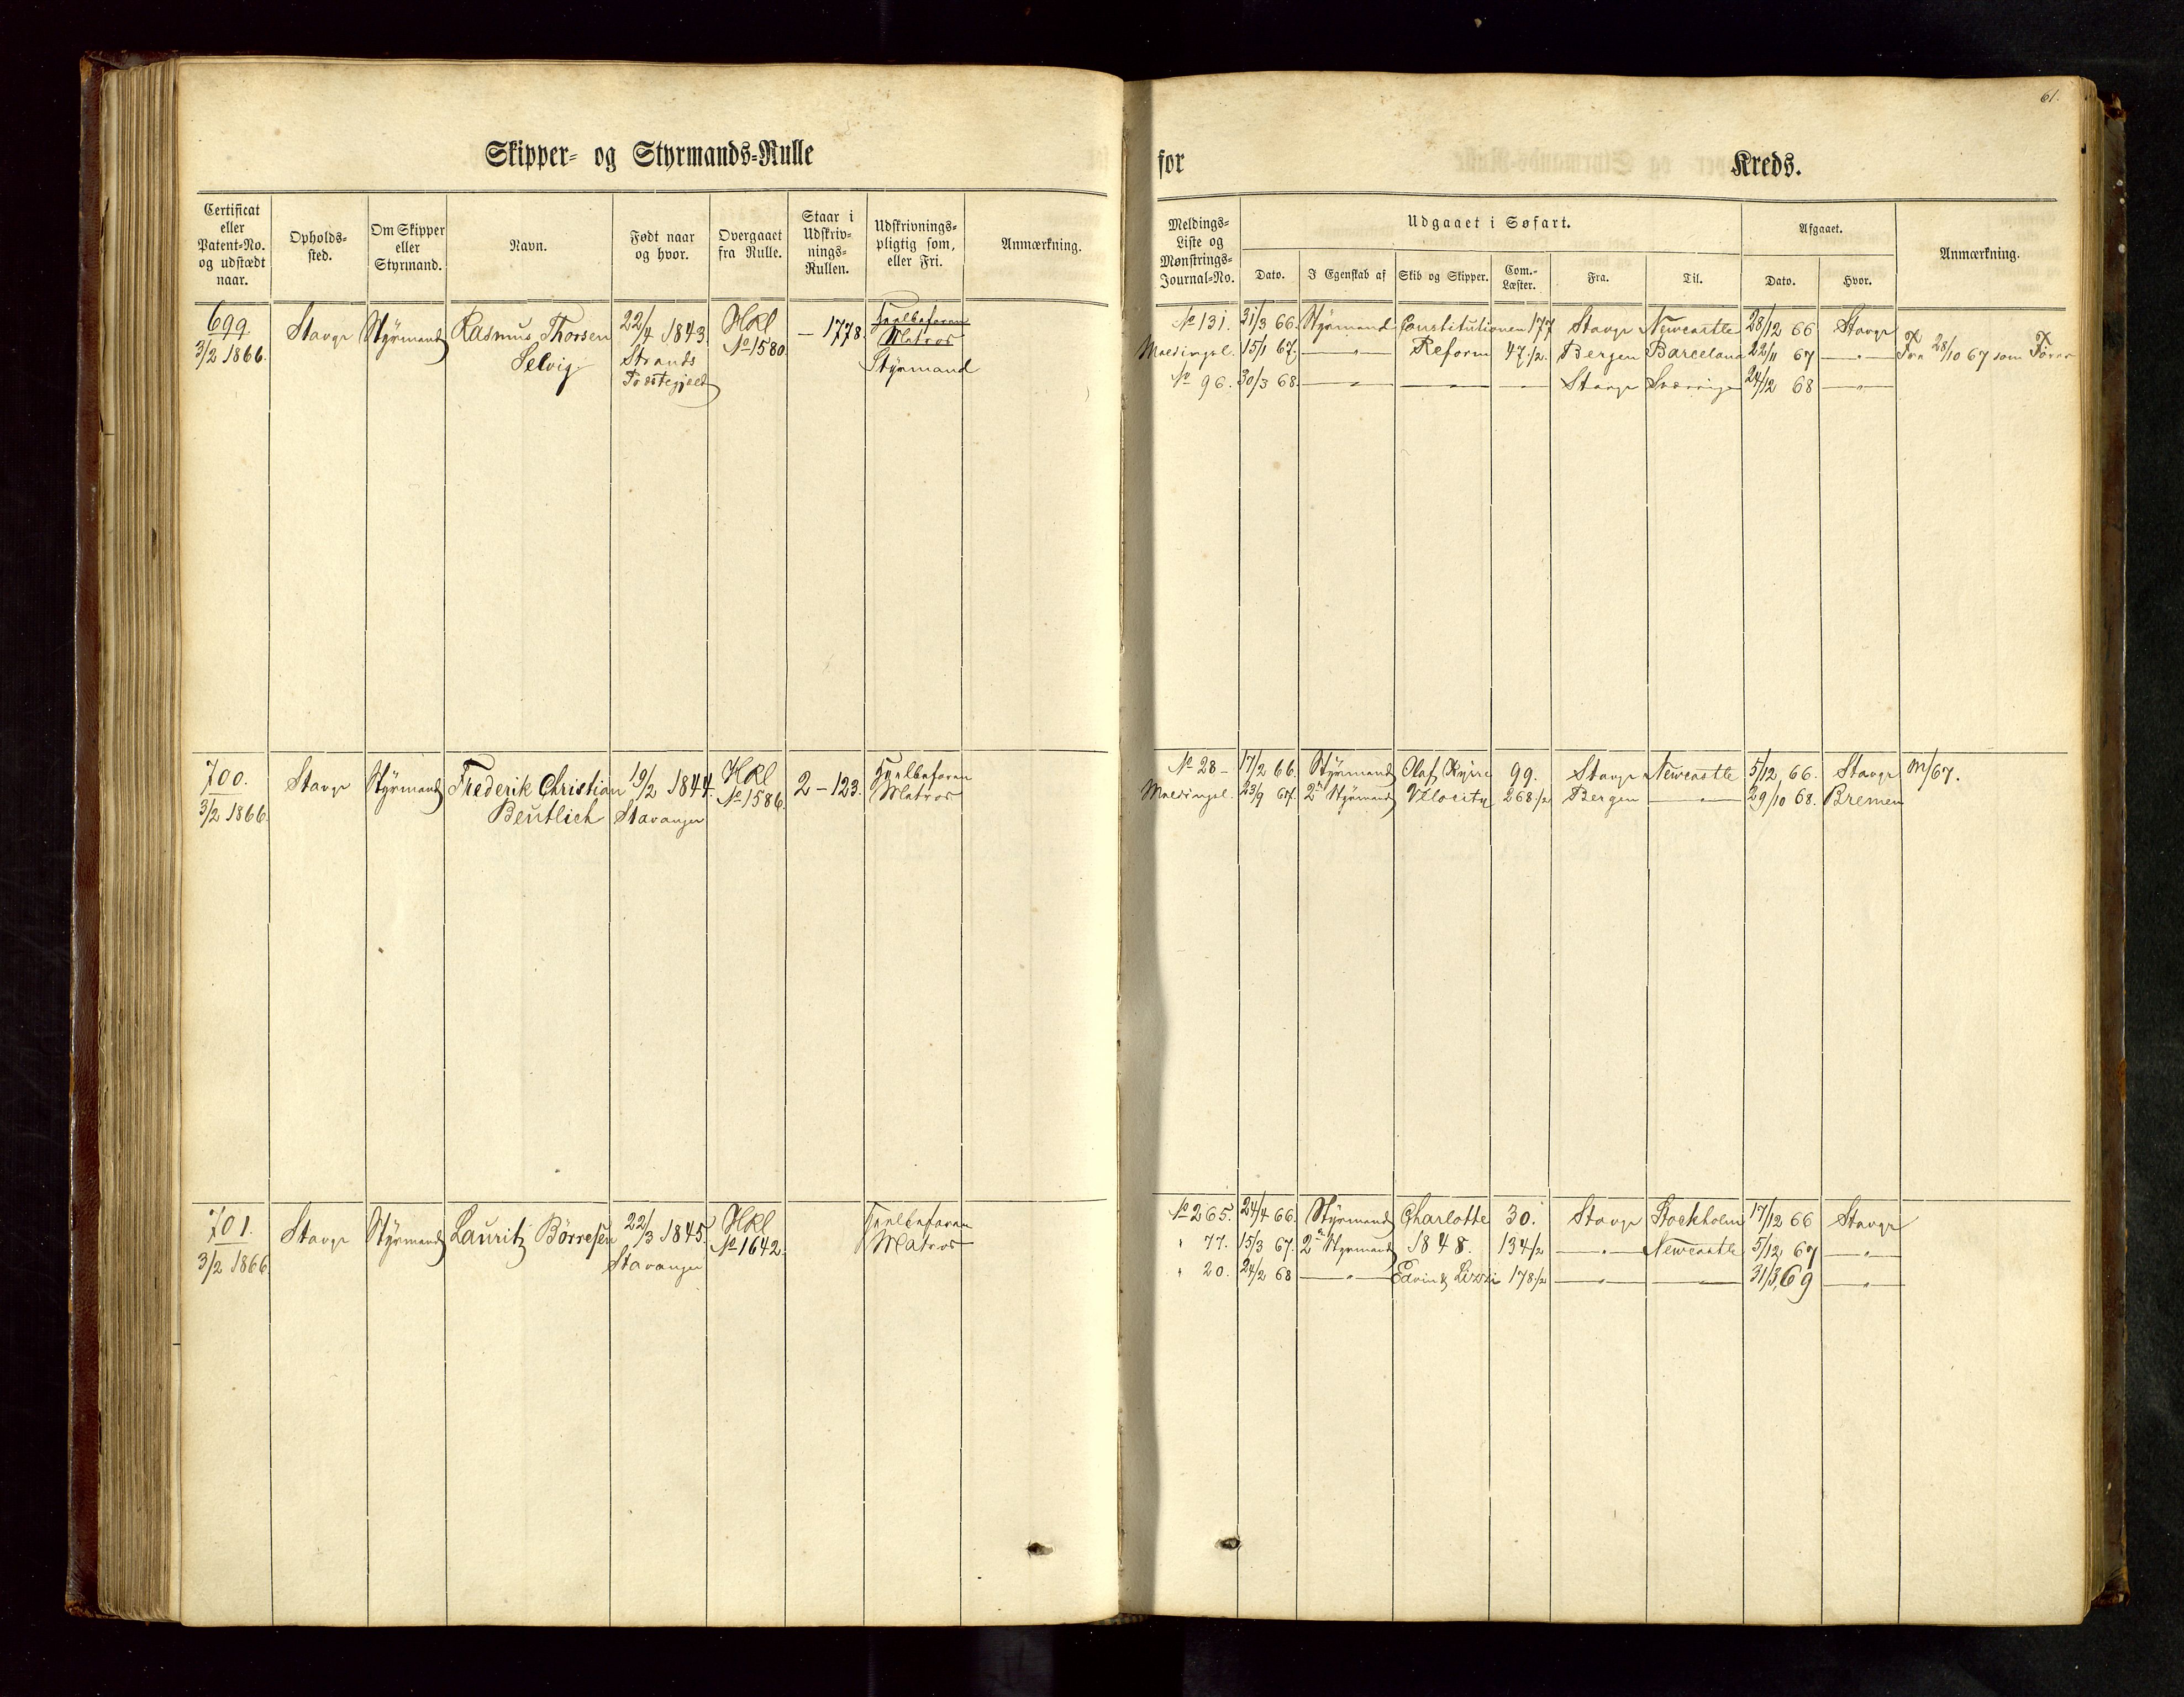 61.
Skipper- og Styrmands-Rulle
for Kreds.
Certificat eller Patent-No. og udstædt naar.
Opholds-sted.
Om Skipper eller Styrmand.
Navn.
Født naar og hvor.
Overgaaet fra Rulle.
Staar i Udskriv-nings-Rullen.
Udskrivnings-pligtig som, eller Fri.
Anmærkning.
Meldings-Liste og Mønstrings-Journal-No.
Udgaaet i Søfart.
Dato.
I Egenskab af
Skib og Skipper.
Com.-Læster.
Fra.
Til.
Afgaaet.
Dato.
Hvor.
Anmærkning.
699. Stavgr Styrmand Rasmus Thorsen 22/4 1843. HRl — 1778. Sjølbefaren
3/2 1866. Selvig. Strands No 1580 Matros
Præstegjeld Styrmand
No 131. 31/3 66. Styrmand Constitutionen 177 Stavgr Newcastle 28/12 66 Stavgr
Meldingsl. 15/1 67. —"— Reform 47 1/2. Bergen Barcelona 22/11 67 —"— Fra 28/10 67 som Fører
No 96. 30/3 68. —"— —"— —"— Stavgr Sverrige 24/12 68 —"—
700. Stavgr Styrmand Frederik Christian 19/2 1844. HRl 2 – 123. Sjølbefaren
3/2 1866. Beutlich Stavanger No 1586. Matros
No 28 – 17/2 66. Styrmand Olaf Kyrre 99. Stavgr Newcastle 5/12 66. Stavgr m/67.
Meldingsl. 23/9 67. 2n Styrmand Velocity 268 1/2 Bergen —"— 29/10 68. Bremen
701. Stavgr Styrmand Lauritz Börresen 22/3 1845. HRl Sjølbefaren
3/2 1866. Stavanger No 1642. Matros
No 265. 24/4 66. Styrmand Charlotte 30. Stavgr Stockholm 17/12 66 Stavgr
" 77. 15/3 67. 2n Styrmand 1848. 134 1/2 —"— Newcastle 5/12 67 —"—
" 20. 24/2 68 —"— Edvin & Lizzi 178 1/2 —"— —"— 31/3 69 —"—